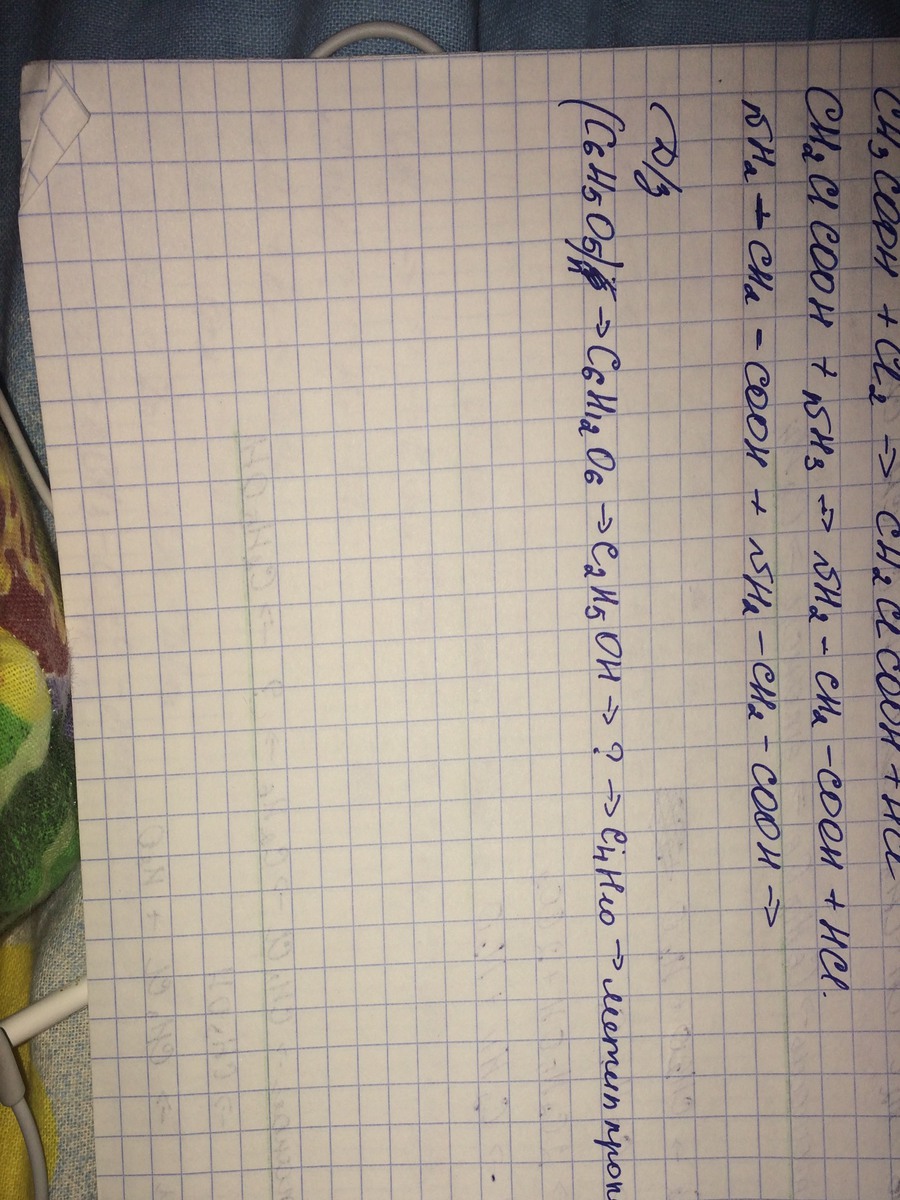 CH3COOH + Cl2 => CH2ClCOOH + HCl
CH2ClCOOH + NH3 => NH2 - CH2 - COOH + HCl.
NH2 - CH2 - COOH + NH2 - CH2 - COOH =>
Д/з
(C6H5O5)n -> C6H12O6 -> C2H5OH -> ? -> C4H10 -> метилпроп